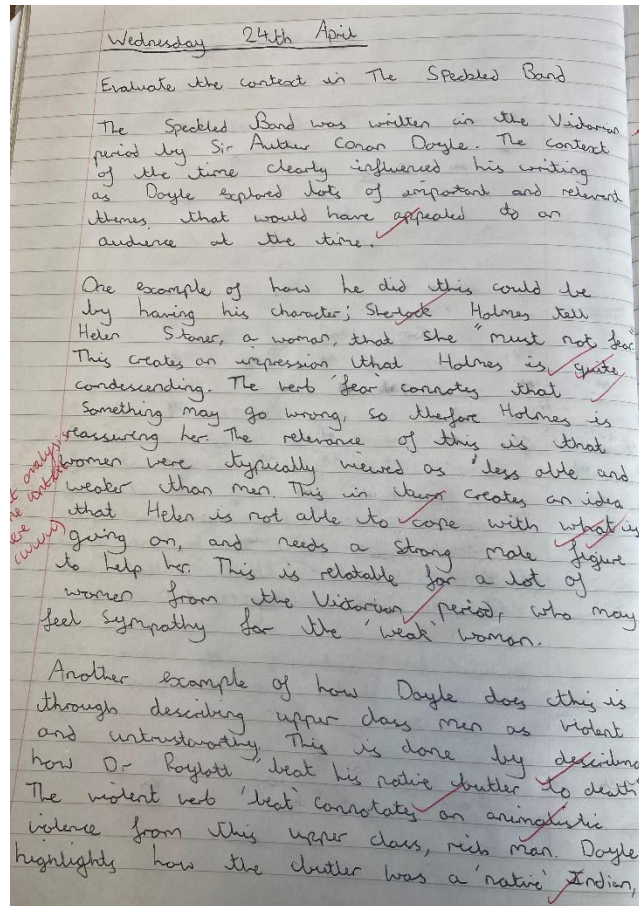 Wednesday 24th April
Evaluate the context in The Speckled Band
The Speckled Band was written in the Victorian
period by Sir Auther Conan Doyle. The context
of the time clearly influenced his writing
as Doyle explored lots of important and relevent
themes that would have appealed to an
audience at the time.
One example of how he did this could be
by having his character; Sherlock Holmes tell
Helen Stoner, a woman, that she "must not fear.
This creates an impression that Holmes is quite
condescending. The verb 'fear' connotes that
something may go wrong, so therfore Holmes is
reassuring her. The relevance of this is that
women were typically viewed as 'less able and
weaker than men. This in turn creates an idea
that Helen is not able to cope with what is
going on, and needs a strong male figure
to help her. This is relatable for a lot of
women from the Victorian period, who may
feel sympathy for the 'weak' woman.
analysis
Another example of how Doyle does this is
through describing upper class men as violent
and untrustworthy. This is done by describing
how Dr Roylott 'beat his native butler to death'
The violent verb 'beat' connotates an animalistic
violence from this upper class, rich man. Doyle
highlights how the butler was a 'native' Indian,